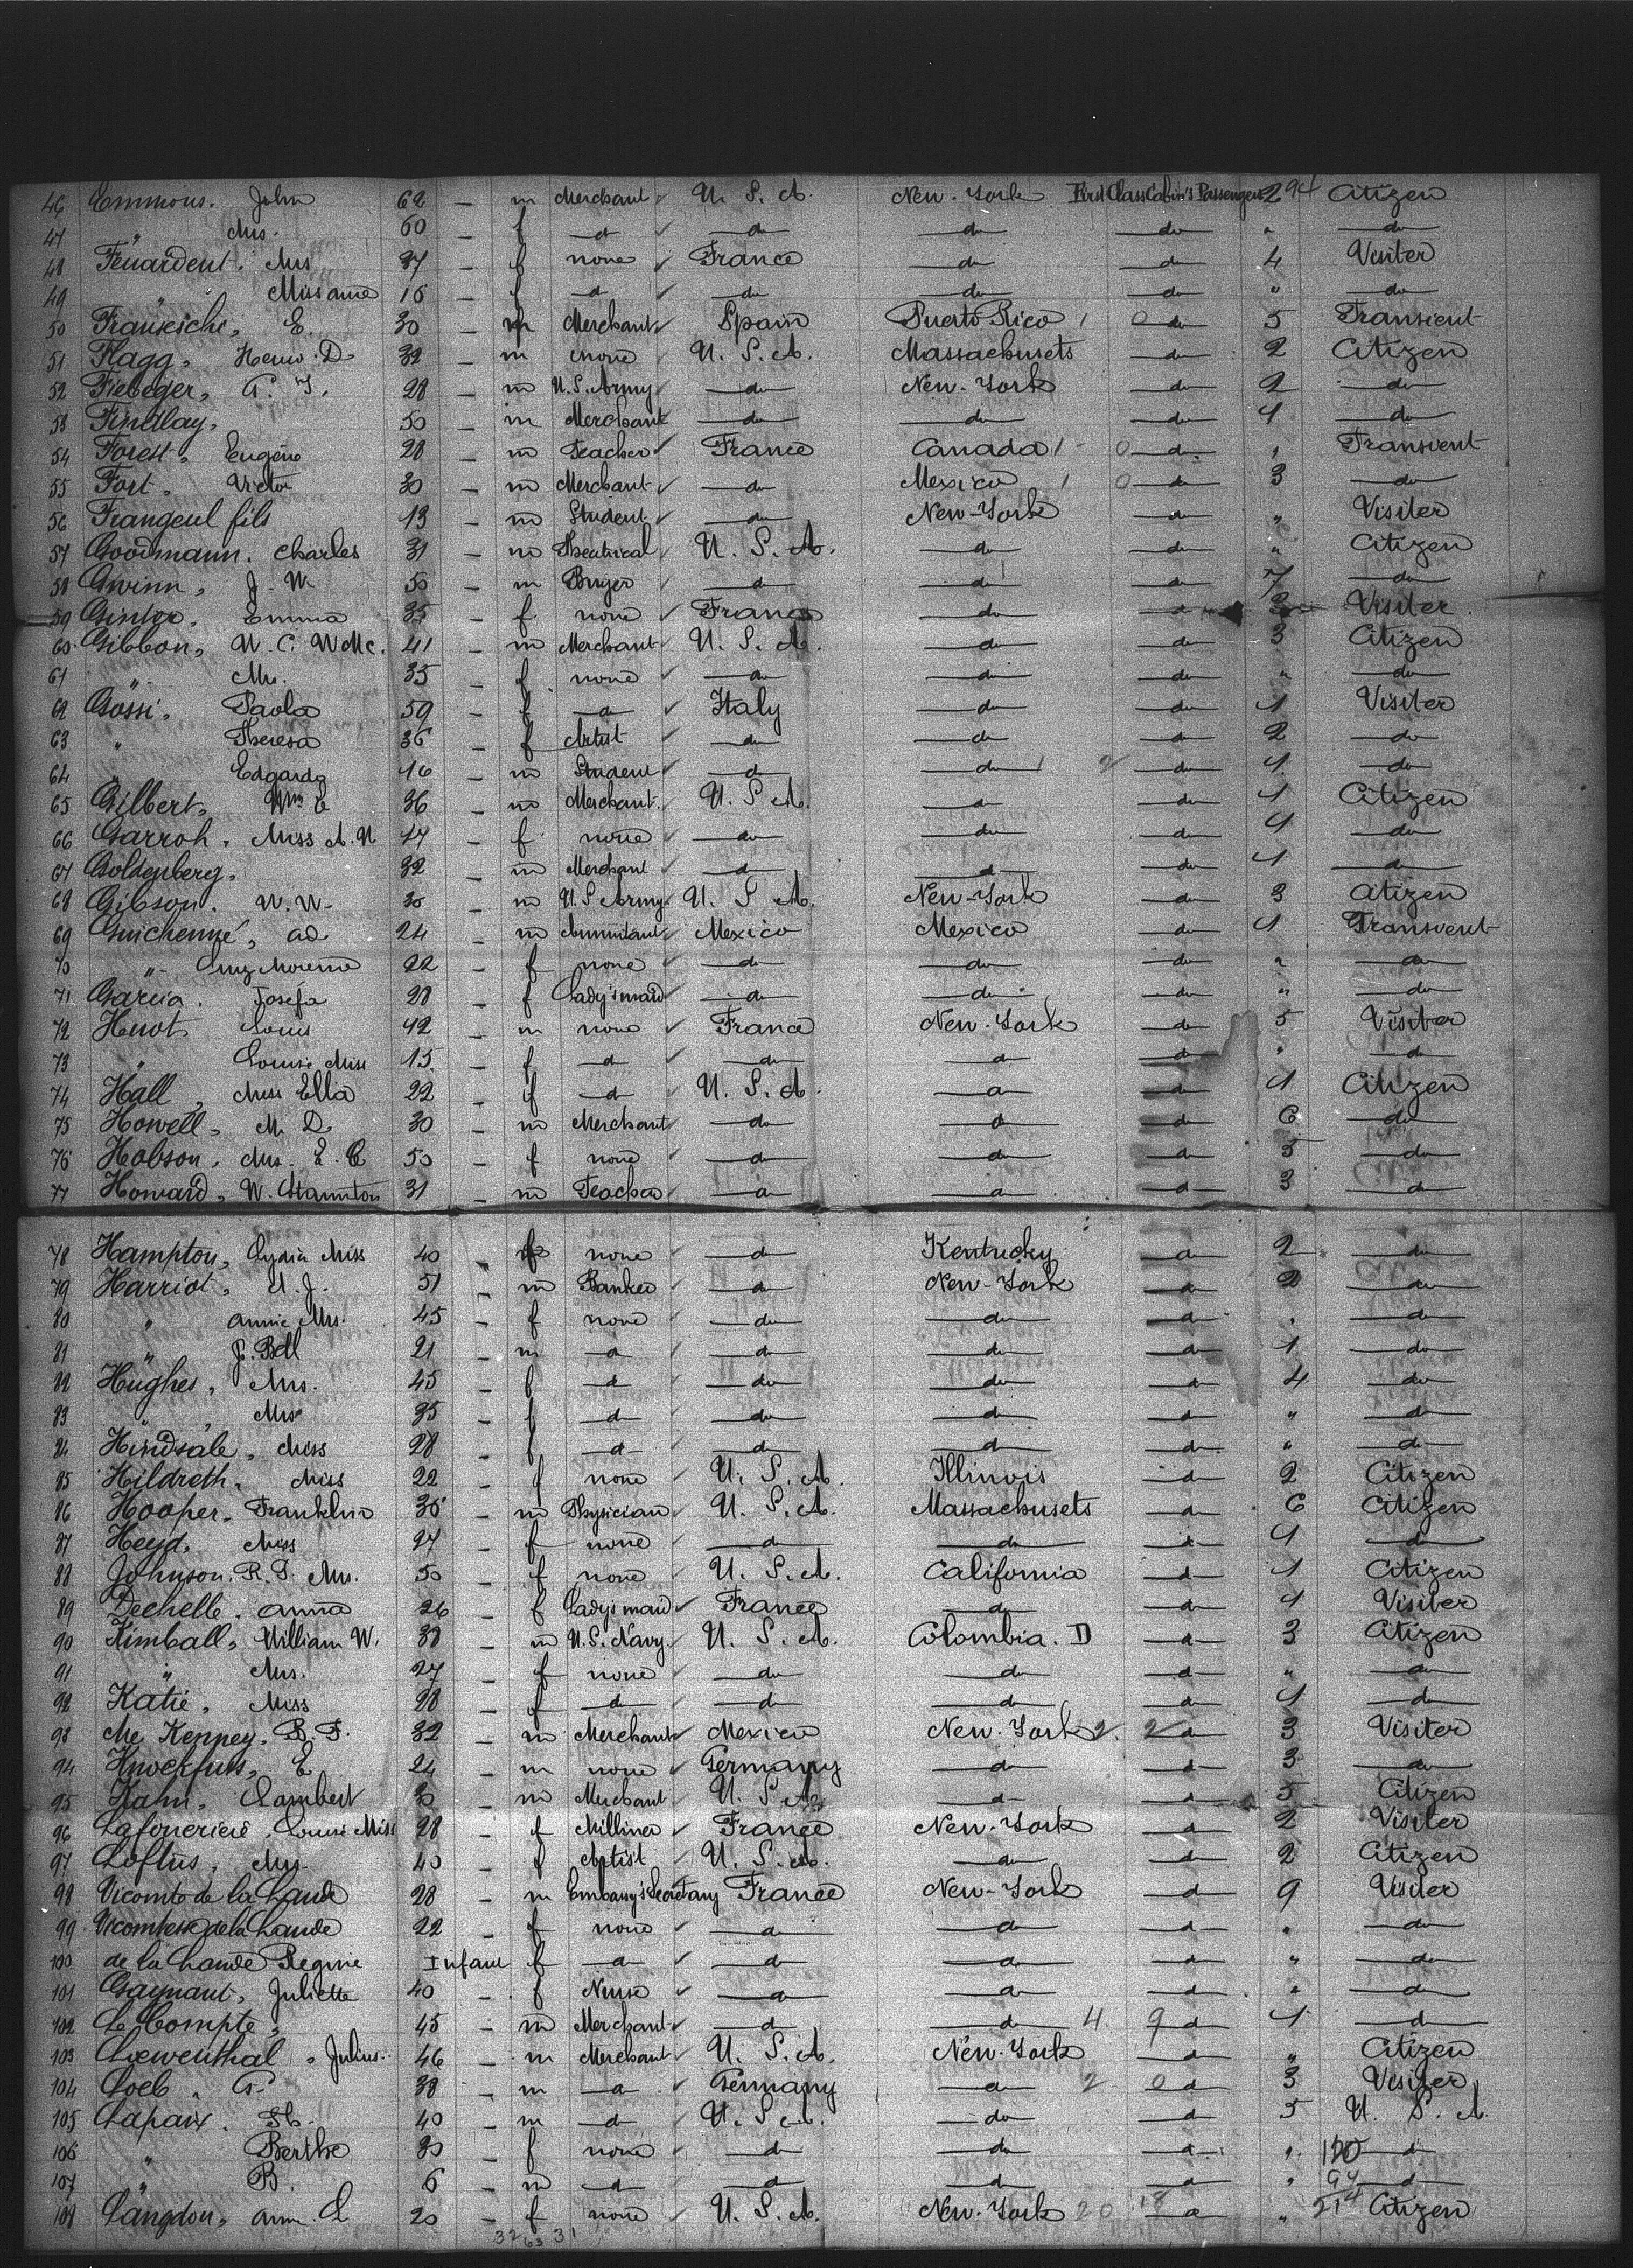 46 Emmons. John 62 - m Merchant U. S. A. New-York First Class Cabin's Passengers 2 94 Citizen
47 " Mrs. 60 - f d do do do " do
48 Feuardent. Mrs 37 - f none France do do 4 Visiter
49 " Miss 16 - f d do do do " do
50 E. 30 - m Merchant Spain Puerto Rico 1 0 do 5 Transient
51 Flagg, D. 32 - m none U. S. A. Massachusets do 2 Citizen
52 Fiebeger, G. J. 28 - m U.S. Army do New-York do 2 do
53 Findlay, 50 - m Merchant do do do 1 do
54 Forest, Eugène 28 - m Teacher France Canada 1 0 d. " Transient
55 Fort, Victor 30 - m Merchant do Mexico 1 0 do 3 do
56 Frangeul fils 13 - m Student do New-York do " Visiter
57 Goodmann. Charles 31 - m Theatrical U. S. A. do do " Citizen
58 Gwinn, J. W. 50 - m Buyer d do do 7 do
59 Ginter, Emma 35 - f none France do d Visiter
60 Gibbon, W. C. W Mc. 41 - m Merchant U. S. A. do do 3 Citizen
61 " Mrs. 35 - f none do do do " do
62 Gossi, Paola 59 - f d Italy do do 1 Visiter
63 " Theresa 36 - f Artist do do do 2 do
64 " Edgardo 16 - m Student do do do 1 do
65 Gilbert, Wm E 36 - m Merchant U. S. A. d do 1 Citizen
66 Garroh, Miss A. W 47 - f none do do do 1 do
67 Goldenberg, 32 - m Merchant d d do 1 d
68 Gibson. W. W. 30 - m U. S Army U. S A. New-York do 3 Citizen
69 Guichenné, ad 24 - m Mexico Mexico do 1 Transient
70 " 22 - f none do do do " do
71 Garcia. Josefa 28 - f Lady's maid do do do " do
72 Huot Louis 42 - m none France New-York do 5 Visiter
73 " Louise Miss 15. - f d do d d " d
74 Hall, Miss Ella 22 - f d U. S. A. d d 1 Citizen
75 Howell, M. D. 30 - m Merchant do d d 6 do
76 Hobson, Mrs. E. C 50 - f none d d d 5 do
77 Howard, W. Staunton 31 - m Teacher d d d 3 d
78 Hampton, Lydia Miss 40 - f none d Kentucky d 2 do
79 Harriot, J. 51 - m Banker d New-York d 2 do
80 " Annie Mrs. 45 - f none do do do " do
81 " J. Bell 21 - m d do do d 1 do
82 Hughes, Mrs. 45 - f d do do d 4 do
83 " Mrs 35 - f d do d d " d
84 Hindsale, Miss 28 - f d d d d " d
85 Hildreth, Miss 22 - f none U. S. A. Illinois d 2 Citizen
86 Hooper, Franklin 36 - m Physician U. S. A. Massachusets d 6 Citizen
87 Heyd, Miss 27 - f none d do d 1 d
88 Johnson, R. S. Mrs. 50 - f none U. S. A. California d 1 Citizen
89 Dechelle. Anna 26 - f Lady's maid France d d 1 Visiter
90 Kimball, William W. 38 - m U. S. Navy. U. S. A. Colombia. D d 3 Citizen
91 " Mrs. 27 - f none do do d " do
92 Katie, Miss 28 - f d d d d 1 d
93 Mc Kenney. B. F. 32 - m Merchant Mexico New-York 2. 2 d 3 Visiter
94 E. 24 - m none Germany d d 3 do
95 Kahn, Lambert 30 - m Merchant U. S. A. d d 5 Citizen
96 Louise Miss 28 - f Milliner France New-York d 2 Visiter
97 Loftus, Mrs. 40 - f Artist U. S. A. d d 2 Citizen
98 Vicomte de la Lande 28 - m Embassy's Secretary France New-York d 9 Visiter
99 Vicomtesse de la Lande 22 - f none d d d " do
100 de la Lande Regine Infant f d d d d " do
101 Gaynaut, Juliette 40 - f Nurse d d d " d
102 Le Compte, 45 - m Merchant d d 4. 9 d 1 d
103 Loewenthal, Julius. 46 - m Merchant U. S. A. New-York d " Citizen
104 Loeb, G. 38 - m d Germany d 2 0 d 3 Visiter
105 Lapaix. Th. 40 - m d U. S. A. do d 5 U. S. A.
106 " Berthe 30 - f none d do d " 120 d
107 " B. 6 - m d d d d " 94 d
108 Langdon, Ann. L 20 - f none U. S. A. New-York 20 18 d " 214 Citizen
32 63 31